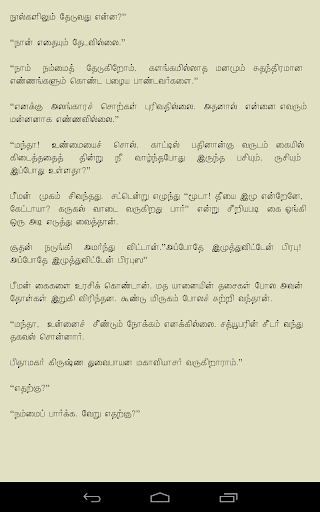 நூல்களிலும் தேடுவது என்ன?"
"நான் எதையும் தேடவில்லை."
"நாம் நம்மைத் தேடுகிறோம். களங்கமில்லாத மனமும் சுதந்திரமான
எண்ணங்களும் கொண்ட பழைய பாண்டவர்களை."
"எனக்கு அலங்காரச் சொற்கள் புரிவதில்லை. அதனால் என்னை எவரும்
மன்னனாக எண்ணவில்லை."
"மந்தா! உண்மையைச் சொல். காட்டில் பதினான்கு வருடம் கையில்
கிடைத்ததைத் தின்று நீ வாழ்ந்தபோது இருந்த பசியும், ருசியும்
இப்போது உள்ளதா?"
பீமன் முகம் சிவந்தது. சட்டென்று எழுந்து "மூடா! தீயை இழு என்றேனே,
கேட்டாயா? கருகல் வாடை வருகிறது பார்" என்று சீறியபடி கை ஓங்கி
ஒரு அடி எடுத்து வைத்தான்.
சூதன் நடுங்கி அமர்ந்து விட்டான்."அப்போதே இழுத்துவிட்டேன் பிரபு!
அப்போதே இழுத்துவிட்டேன் பிரபுஸ"
பீமன் கைகளை உரசிக் கொண்டான். மத யானையின் தசைகள் போல அவன்
தோள்கள் இறுகி விரிந்தன. கூண்டு மிருகம் போலச் சுற்றி வந்தான்.
"மந்தா, உன்னைச் சீண்டும் நோக்கம் எனக்கில்லை. சத்யூபரின் சீடர் வந்து
தகவல் சொன்னார்.
பிதாமகர் கிருஷ்ண துவைபாயன மகாவியாசர் வருகிறாராம்."
"எதற்கு?"
"நம்மைப் பார்க்க. வேறு எதற்கு?"